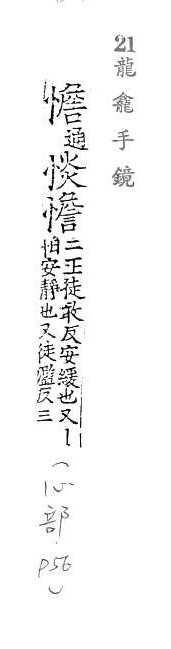 21龍龕手鏡
憺通惔憺二正徒敢反安緩也又丨
怕安靜也又徒濫反三
(心部 P56)